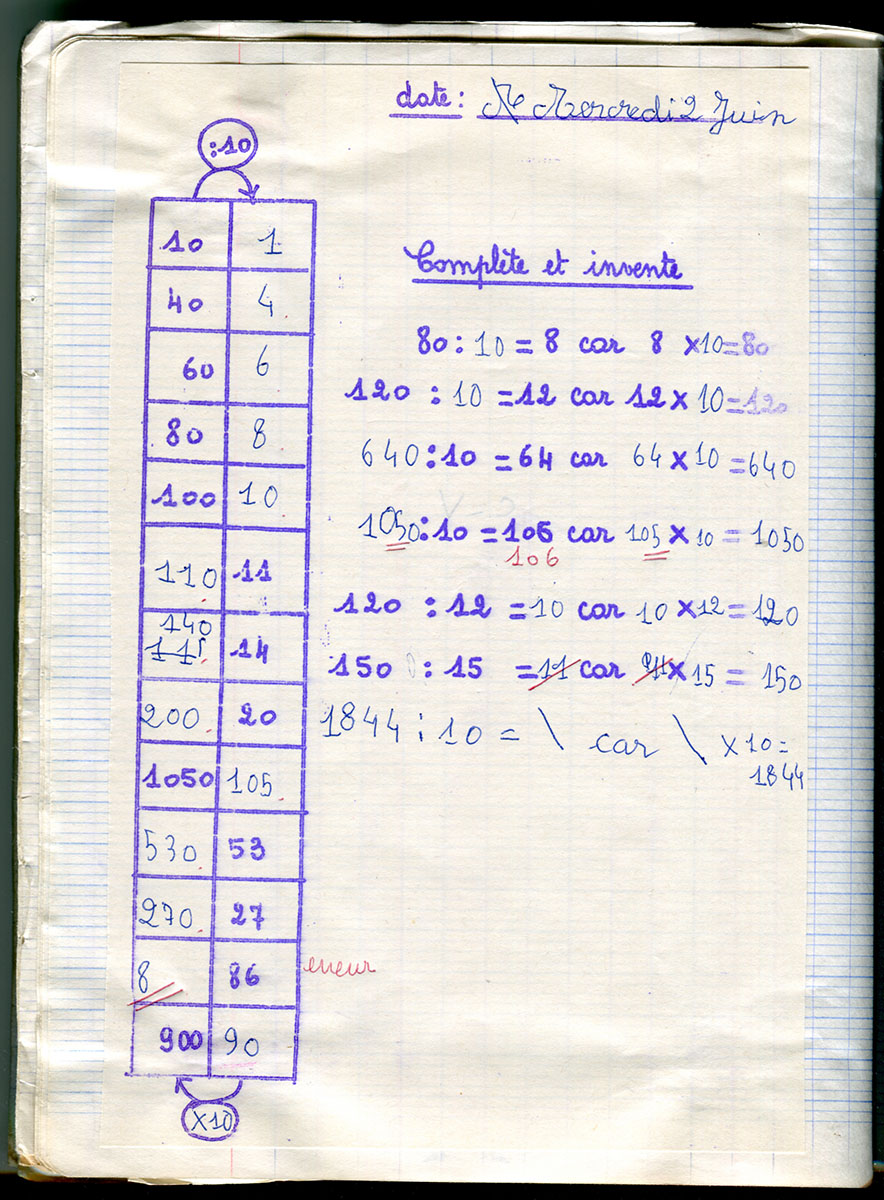 date: Mercredi 2 Juin
:10
10 1
40 4
60 6
80 8
100 10
110 11
140
111 14
200 20
1050 105
530 53
270 27
8 86 erreur
900 90
X10
Complète et invente
80 : 10 = 8 car 8 x10=80
120 : 10 =12 car 12 x 10=120
640 :10 = 64 car 64 x 10 =640
1050 :10 =106 car 105 x 10 = 1050
106
120 : 12 =10 car 10 x12=120
150 : 15 =11 car 11 x 15 = 150
1844 : 10 = \ car \ x 10 =
1844